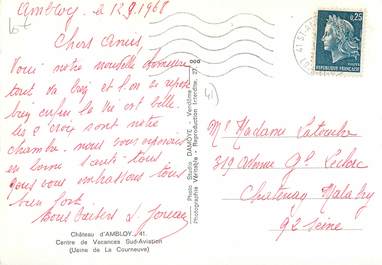 Ambloy. le 12.9.1968
Chers Amis,
Voici notre nouvelle demeure
tout va bien et l'on se repose
bien enfin la vie est belle.
les 2 croix sont notre
chambre. nous vous espérons
en bonne santé tous
nous vous embrassons tous
bien fort
Château d'AMBLOY .41.
Centre de Vacances Sud-Aviation
(Usine de La Courneuve)
Photo Studio DAMOYE - Vendôme
Photographie Véritable - Reproduction Interdite. 27
41
0,25
REPUBLIQUE FRANÇAISE
41 ST
Mr Madame Latouche
319 Avenue Gl Leclerc
Chatenay Malabry
92 Seine